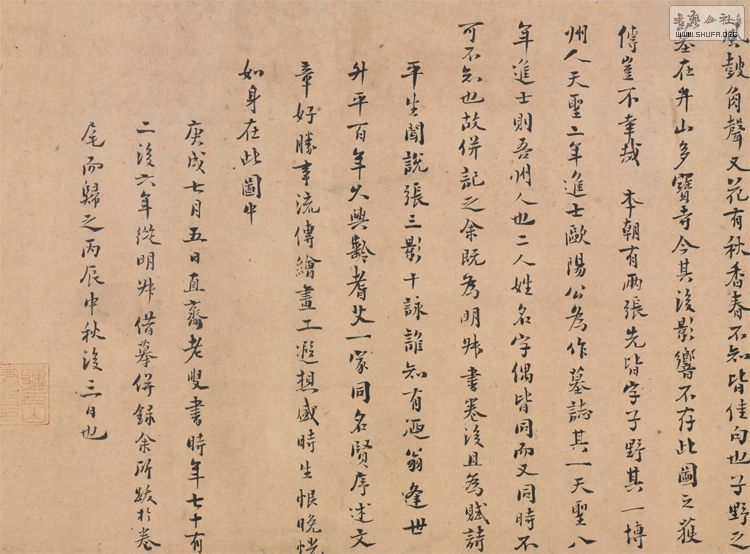 鼓角聲又花有秋香春不知皆佳句也子野之
墓在弁山多寶寺今其後影響不存此圖之獲
傳豈不幸哉 本朝有兩張先皆字子野其一博
州人天聖二年進士歐陽公為作墓誌其一天聖八
年進士則吾州人也二人姓名字偶皆同而又同時不
可不知也故併記之余既為明叔書卷後且為賦詩
平生聞說張三影十詠誰知有迺翁逢世
升平百年久與齡耆艾一家同名賢序述文
章好勝事流傳繪畫工遐想盛時生恨晚恍
如身在此圖中
庚戌七月五日直齋老叟書時年七十有
二後六年從明叔借摹併錄余所跋於卷
尾而歸之丙辰中秋後三日也
WWW.SHUFA.ORG